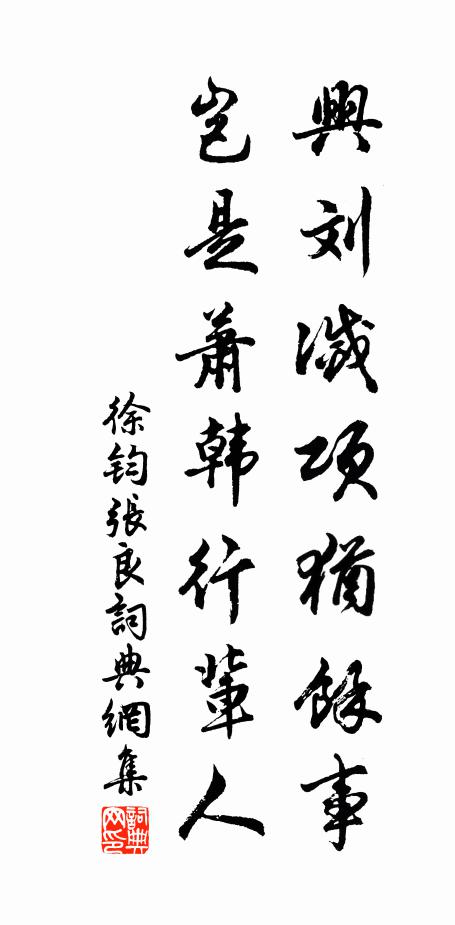 興刘滅項猶餘事
豈是蕭韩行輩人
徐钧張良詞典網集
詞典网印